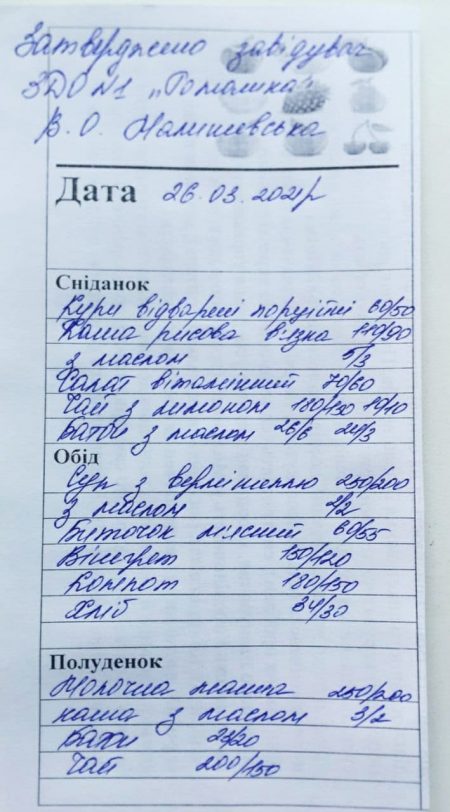 Затверджено завідувач
ЗДО №1 „Ромашка"
В. О. Малишевська
Дата 26.03.2021р
Сніданок
Кури відварені порційні 60/50
Каша рисова в'язка 110/90
з маслом 5/3
Салат вітамінний 70/60
Чай з лимоном 180/150 10/10
Батон з маслом 26/6 24/3
Обід
Суп з вермішеллю 250/200
з маслом 2/2
Биточок м'ясний 60/55
Вінегрет 150/120
Компот 180/150
Хліб 34/30
Полуденок
Молочна манна 250/200
каша з маслом 3/2
Батон 23/20
Чай 200/150